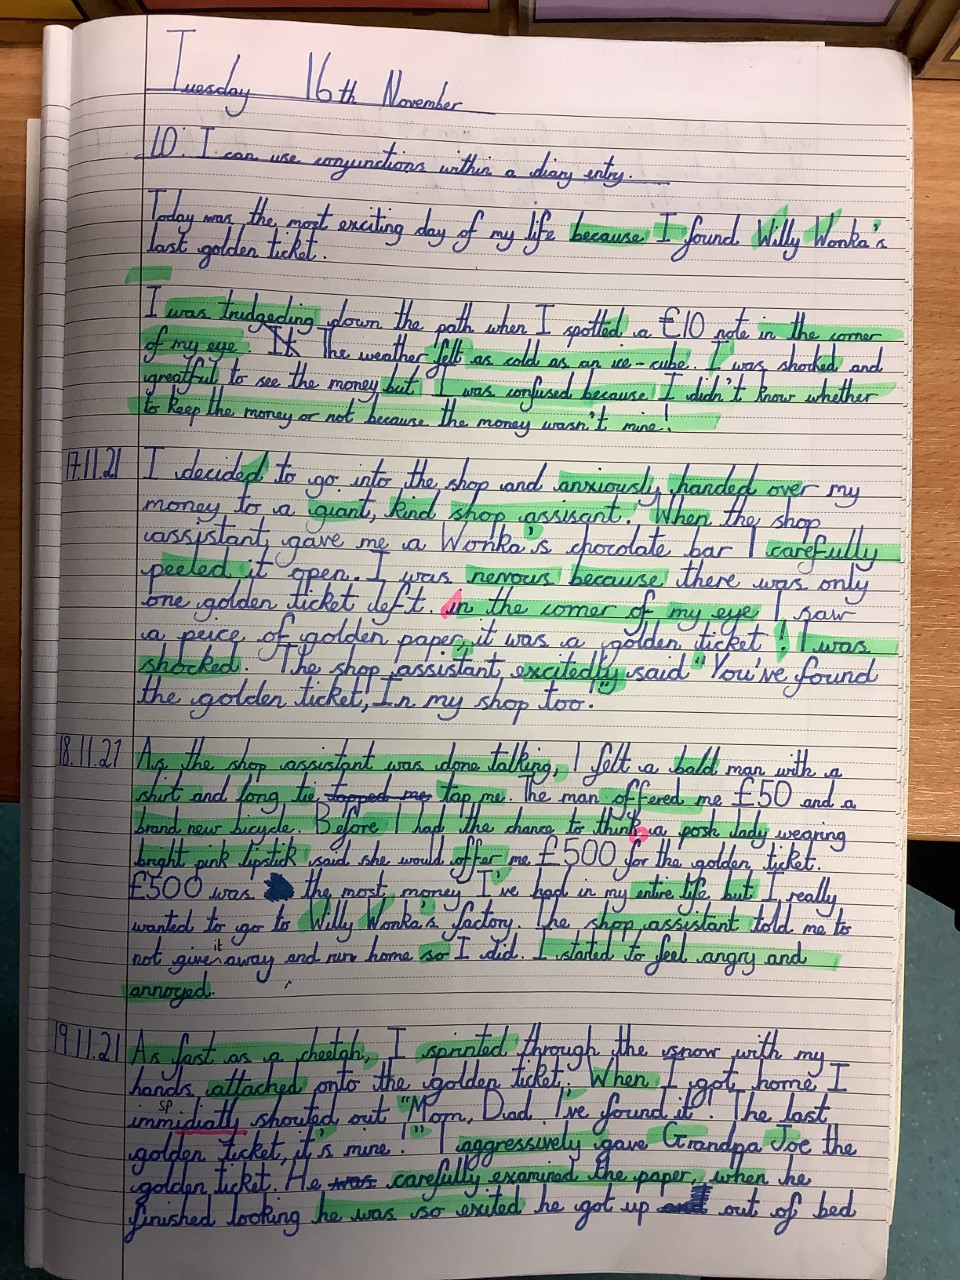 Tuesday 16th November
10. I can use conjunctions within a diary entry.
Today was the most exciting day of my life because I found Willy Wonka's
last golden ticket.
I was trudgeding down the path when I spotted a £10 note in the corner
of my eye. It The weather felt as cold as an ice-cube. I was shocked and
greatful to see the money but I was confused because I didn't know whether
to keep the money or not because the money wasn't mine!
17.11.21 I decided to go into the shop and anxiously handed over my
money to a giant, kind shop assisant. When the shop
assistant gave me a Wonka's chocolate bar I carefully
peeled it open. I was nervous because there was only
one golden ticket left. in the corner of my eye I saw
a peice of golden paper, it was a golden ticket! I was
shocked. The shop assistant, excitedly said "You've found
the golden ticket, In my shop too."
18.11.21 As the shop assistant was done talking, I felt a bald man with a
shirt and long tie tapped me tap me. The man offered me £50 and a
brand new bicycle. Before I had the chance to think a posh lady wearing
bright pink lipstick said she would offer me £500 for the golden ticket.
£500 was the most money I've had in my entire life but I really
wanted to go to Willy Wonka's factory. The shop assistant told me to
not give it away and run home so I did. I started to feel angry and
annoyed.
19.11.21 As fast as a cheetah, I sprinted through the snow with my
hands attached onto the golden ticket. When I got home I
sp
immidiatly shouted out "Mom, Dad I've found it! The last
golden ticket, it's mine!" I aggressively gave Grandpa Joe the
golden ticket. He was carefully examined the paper, when he
finished looking he was so exited he got up and out of bed